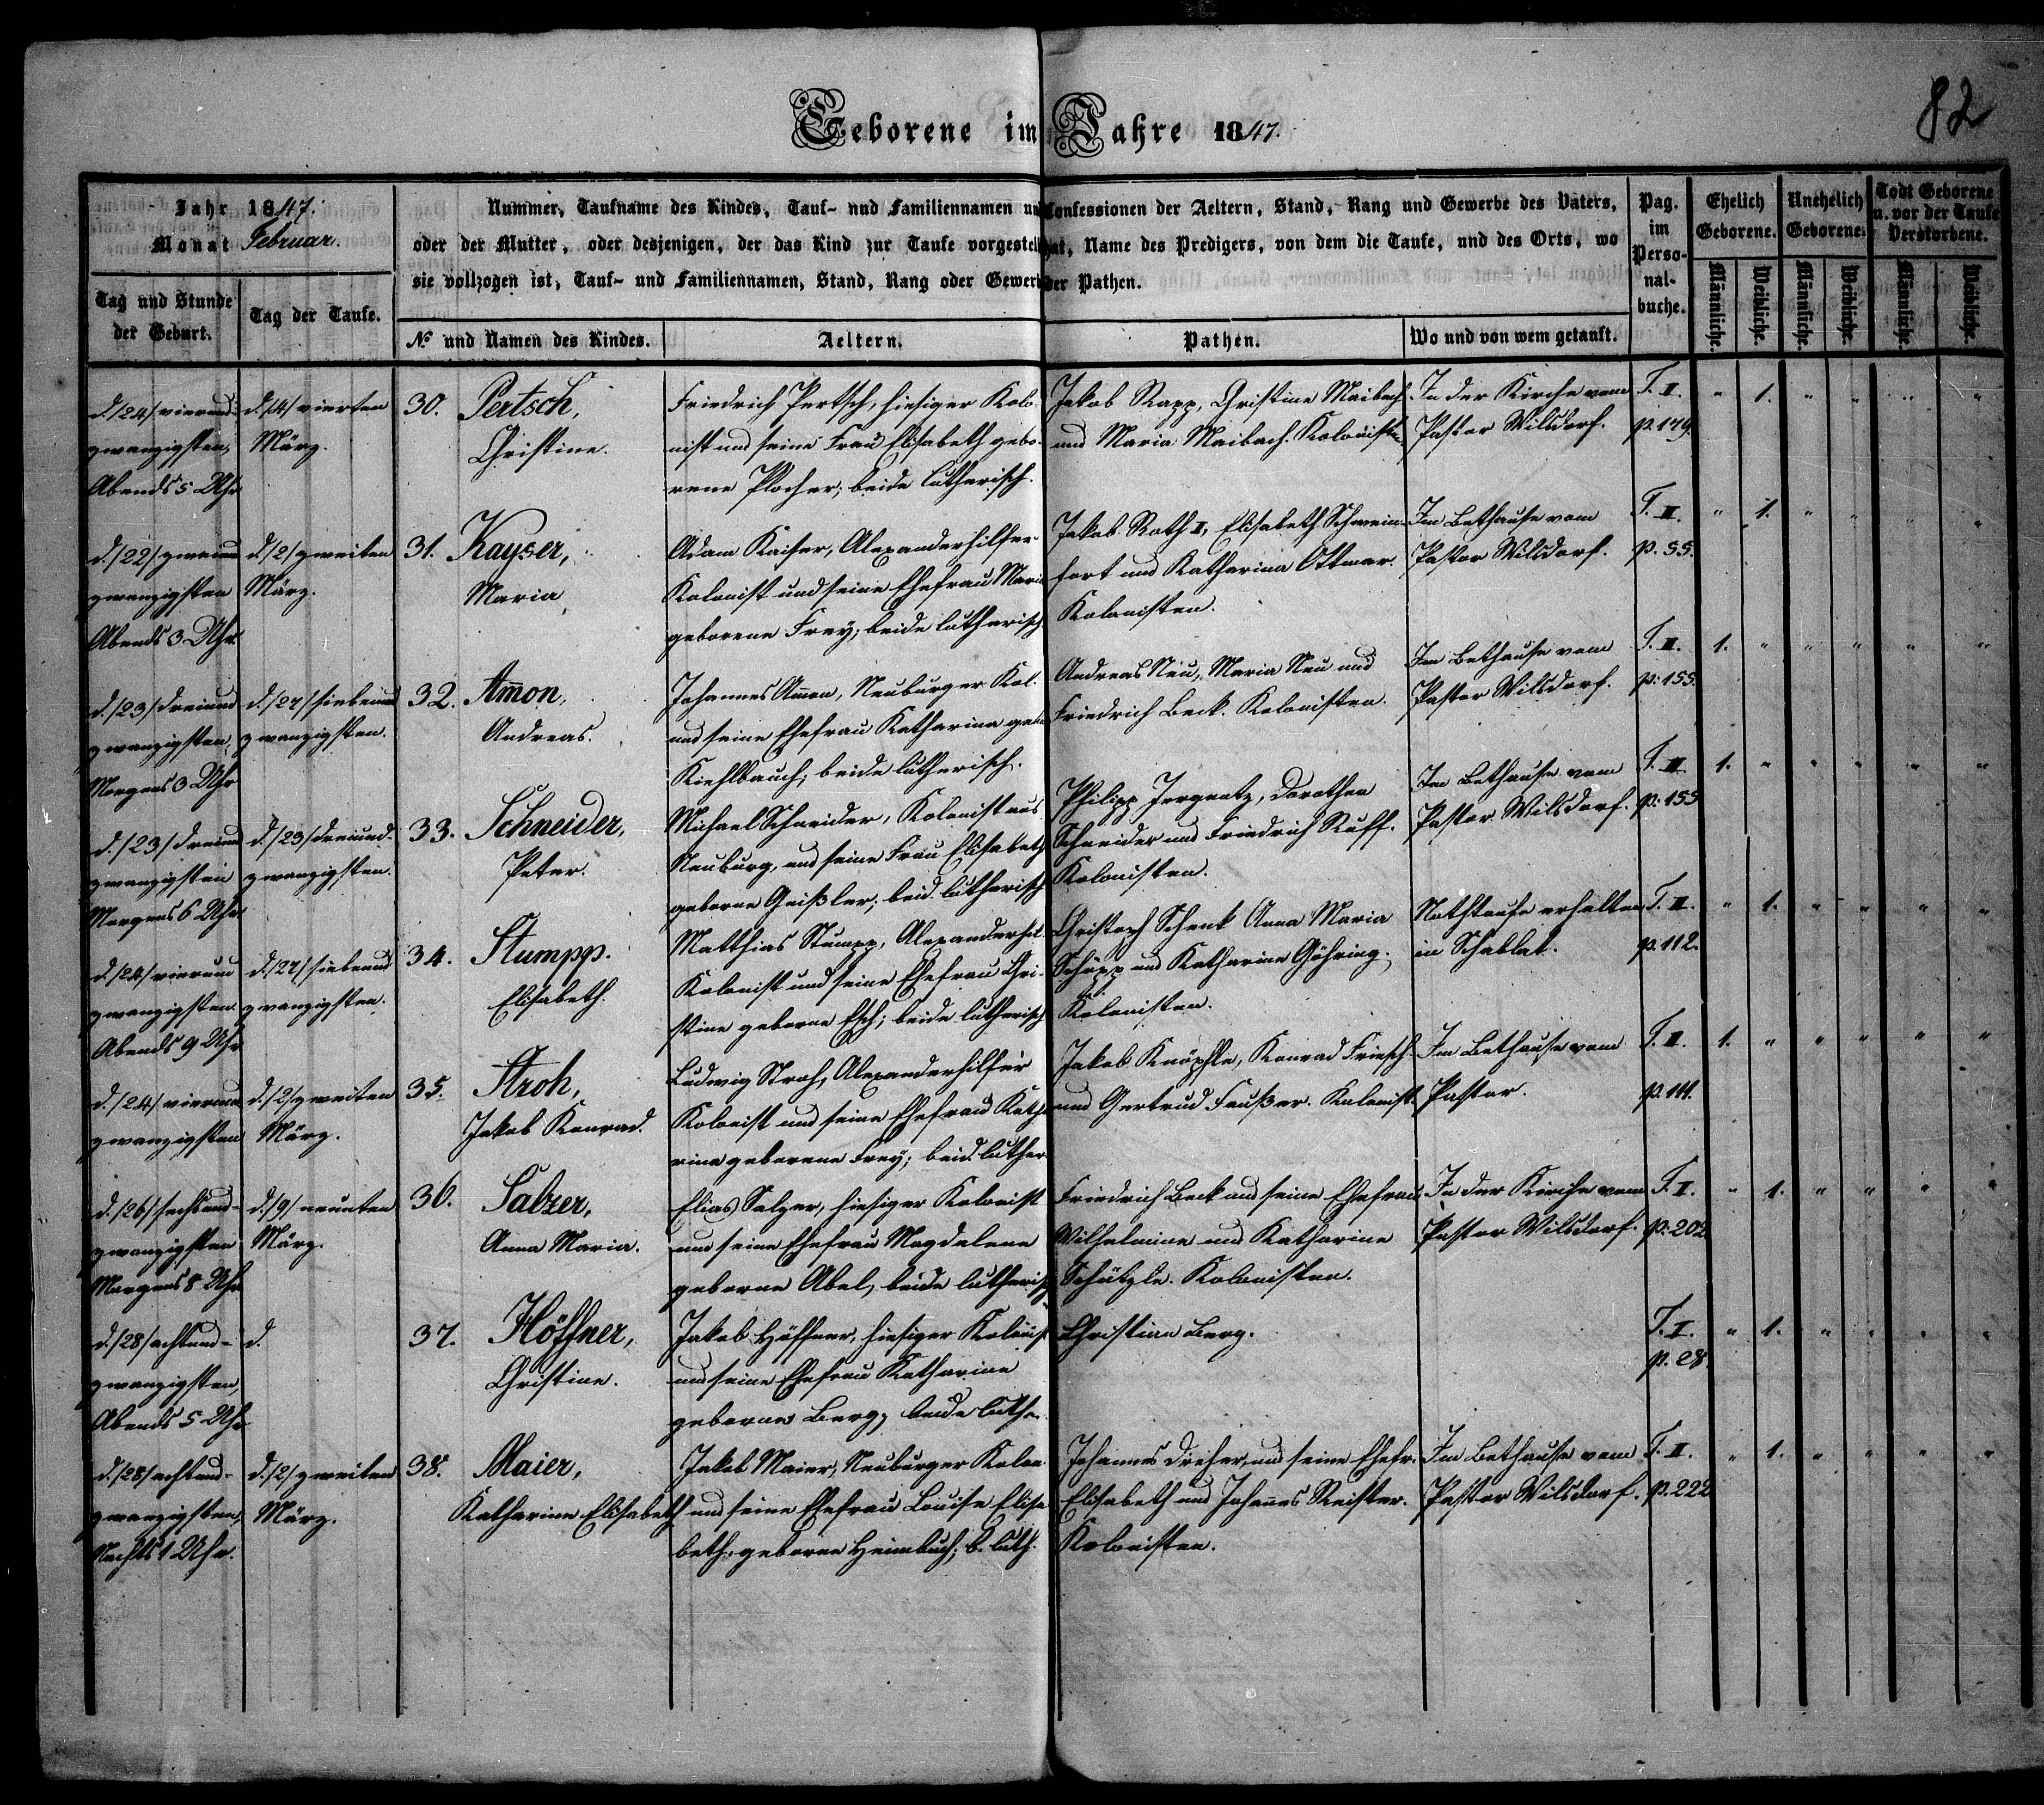 82
Geborene im Jahre 1847.
Jahr 1847.
Monat Februar.
Nummer, Taufname des Kindes, Tauf- und Familiennamen und Confessionen der Aeltern, Stand, Rang und Gewerbe des Vaters,
oder der Mutter, oder desjenigen, der das Kind zur Taufe vorgestellt hat, Name des Predigers, von dem die Taufe, und des Orts, wo
sie vollzogen ist, Tauf- und Familiennamen, Stand, Rang oder Gewerbe der Pathen.
Pag.
im
Perso-
nal-
buche.
Ehelich
Geborene.
Unehelich
Geborene.
Todt Geborene
u. vor der Taufe
Verstorbene.
Männliche.
Weibliche.
Männliche.
Weibliche.
Männliche.
Weibliche.
Tag und Stunde
der Geburt.
Tag der Taufe.
No und Namen des Kindes.
Aeltern.
Pathen.
Wo und von wem getauft.
d. /24/ vierund-
zwanzigsten,
Abends 5 Uhr
d. /4/ vierten
März.
30. Pertsch,
Christine.
Friedrich Pertsch, hiesiger Kolo-
nist und seine Frau Elisabeth gebo-
rene Plocher; beide lutherisch.
Jakob Rapp, Christine Maibach
und Maria Maibach. Kolonisten.
In der Kirche vom
Pastor Wilsdorf.
T. II.
p. 179.
" 1. " " " "
d. /22/ zweiund
zwanzigsten
Abends 3 Uhr
d. /2/ zweiten
März.
31. Kayser,
Maria
Adam Kaiser, Alexanderhilfer
Kolonist und seine Ehefrau Maria
geborene Frey; beide lutherisch
Jakob Roth II, Elisabeth Schwein-
fort und Katharina Ottmar.
Kolonisten.
Im Bethause vom
Pastor Wilsdorf.
T. II.
p. 55.
" 1. " " " "
d. /23/ dreiund
zwanzigsten,
Morgens 3 Uhr
d. /27/ siebenund
zwanzigsten.
32. Amon,
Andreas.
Johannes Amon, Neuburger Kol.
und seine Ehefrau Katharina geb.
Kiehlbauch; beide lutherisch.
Andreas Neu, Maria Neu und
Friedrich Beck. Kolonisten.
Im Bethause vom
Pastor Wilsdorf.
T. II.
p. 155.
1. " " " " "
d. /23/ dreiund
zwanzigsten
Morgens 6 Uhr
d. /23/ dreiund-
zwanzigsten.
33. Schneider,
Peter.
Michael Schneider, Kolonist aus
Neuburg, und seine Frau Elisabeth
geborne Geißler; beid. lutherisch
Philipp Jergentz, Dorothea
Schneider und Friedrich Ruff.
Kolonisten.
Im Bethause vom
Pastor Wilsdorf.
T. II
p. 155
1. " " " " "
d. /24/ vierund
zwanzigsten
Abends 9 Uhr
d. /27/ siebenund
zwanzigsten.
34. Stumpp.
Elisabeth.
Matthias Stumpp, Alexanderhil.
Kolonist und seine Ehefrau Chri-
stine geborne Esch; beide lutherisch
Christoph Schenk Anna Maria
Schöpp und Katharina Göhring.
Kolonisten.
Nothtaufe erhalten
in Schablat.
T. II.
p. 112.
" 1. " " " "
d. /24/ vierund
zwanzigsten
d. /2/ zweiten
März.
35. Stroh,
Jakob Konrad.
Ludwig Stroh, Alexanderhilfer
Kolonist und seine Ehefrau Katha-
rina geborene Frey; beid. luther.
Jakob Knöpfle, Konrad Friesch
und Gertrud Faußer. Kolonist.
Im Bethause vom
Pastor.
T. II.
p. 111.
1. " " " " "
d. /26/ sechsund-
zwanzigsten
Morgens 8 Uhr
d. /9/ neunten
März.
36. Salzer,
Anna Maria.
Elias Salzer, hiesiger Kolonist
und seine Ehefrau Magdalena
geborne Abel, beide lutherisch
Friedrich Beck und seine Ehefrau
Wilhelmine und Katharine
Schätzle. Kolonisten.
In der Kirche vom
Pastor Wilsdorf.
T. I.
p. 202
" 1. " " " "
d. /28/ achtund-
zwanzigsten,
Abends 5 Uhr
d.
37. Höffner,
Christine.
Jakob Höffner, hiesiger Kolonist
und seine Ehefrau Katharine
geborne Berg, beide luth.
Christian Berg.
T. I.
p. 28.
" 1. " " " "
d. /28/ achtund-
zwanzigsten,
Nachts 1 Uhr.
d. /2/ zweiten
März.
38. Maier,
Katharine Elisabeth
Jakob Maier, Neuburger Kolon.
und seine Ehefrau Louise Elisa-
beth, geborne Heimbuch; b. luth.
Johannes Dreher, und seine Ehefr.
Elisabeth und Johannes Reister.
Kolonisten.
Im Bethause vom
Pastor Wilsdorf.
T. II.
p. 222
" 1. " " " "